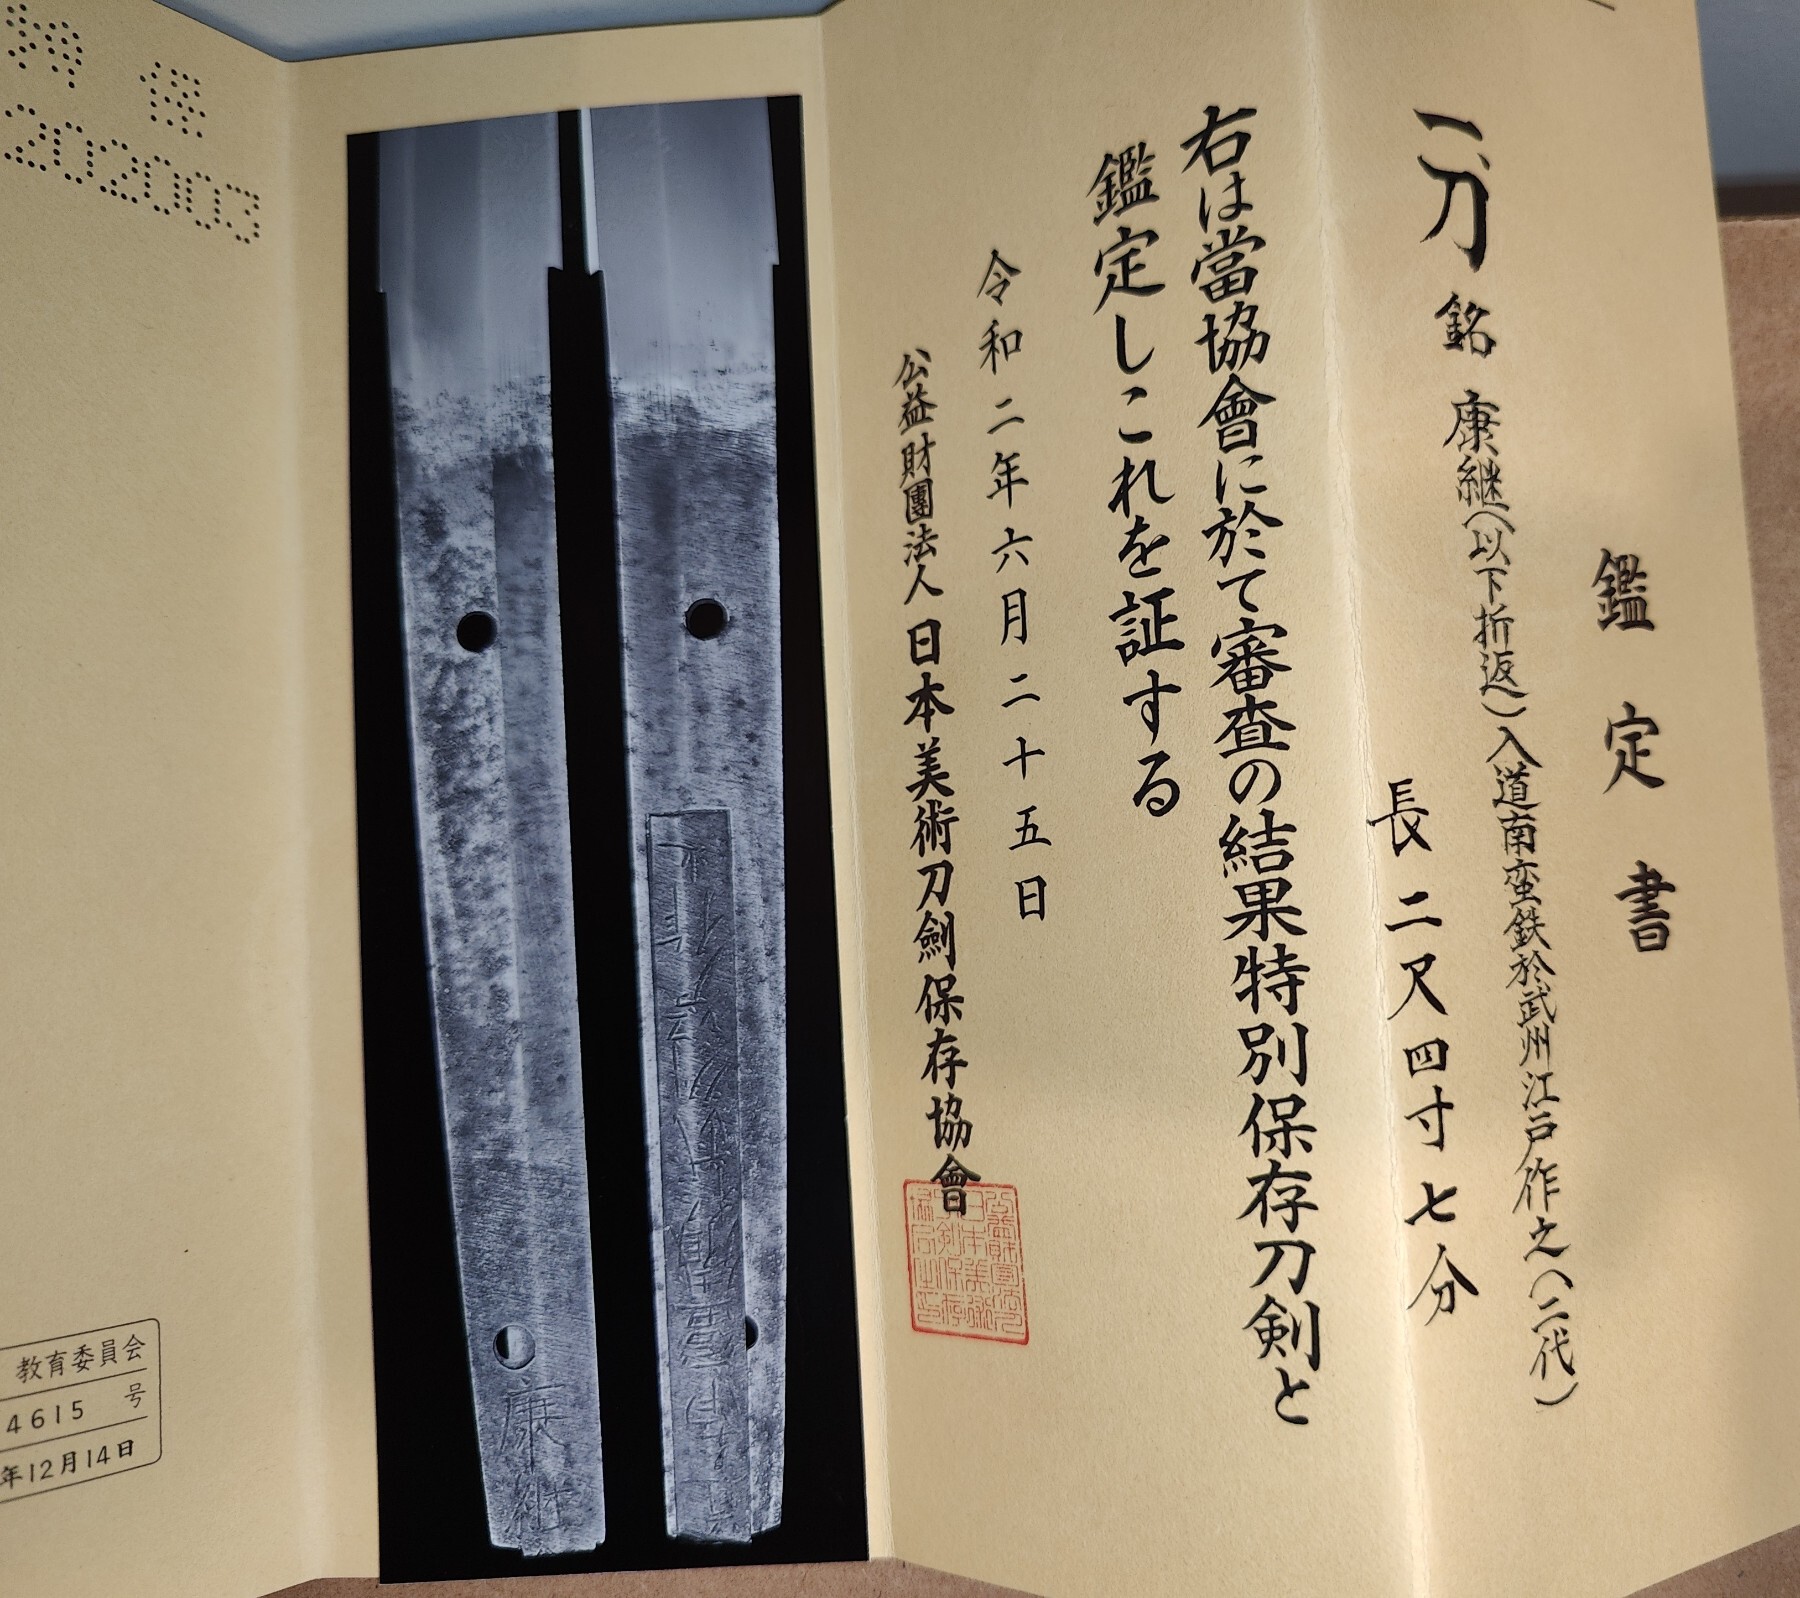 鑑定書
一刀 銘 康継(以下折返)入道南蛮鉄於武州江戸作之(二代)
長二尺四寸七分
右は當協會に於て審査の結果特別保存刀剣と
鑑定しこれを証する
令和二年六月二十五日
公益財團法人日本美術刀劍保存協會
康継
202003
教育委員会
4615 号
年12月14日